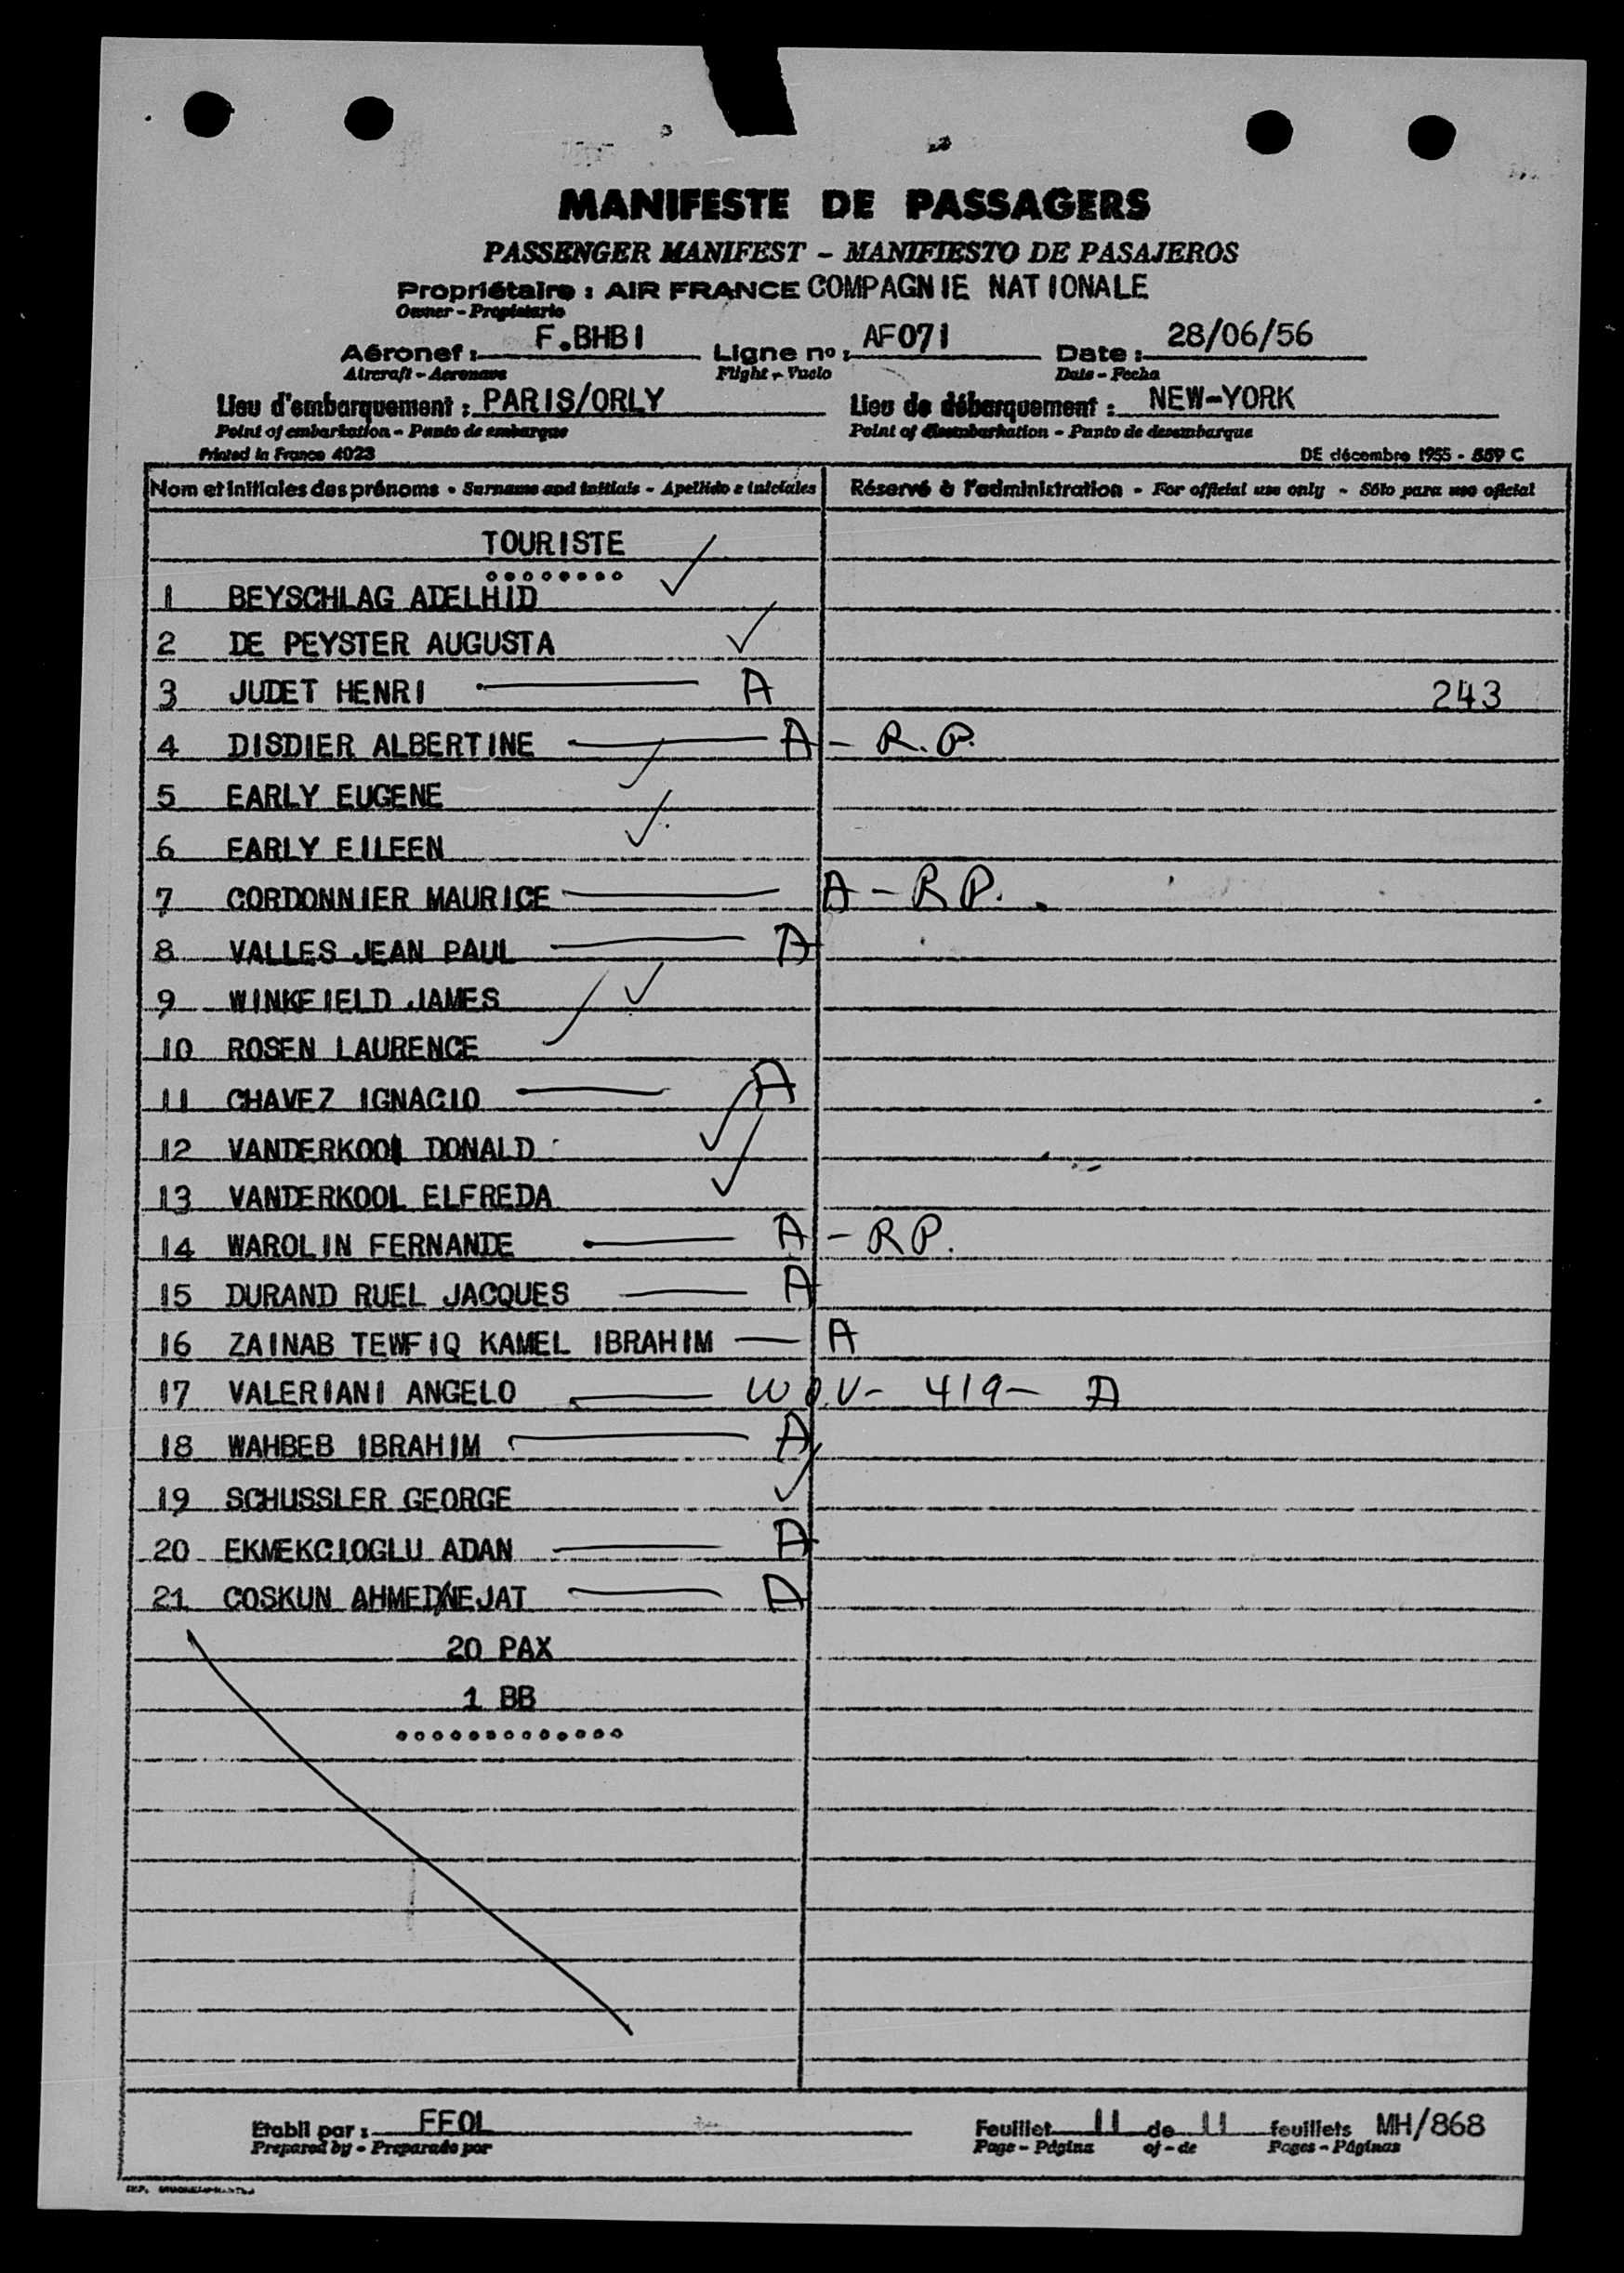 MANIFESTE DE PASSAGERS
PASSENGER MANIFEST - MANIFIESTO DE PASAJEROS
Propriétaire : AIR FRANCE COMPAGNIE NATIONALE
Owner - Propietario
Aéronef : F.BHBI Ligne no : AF071 Date : 28/06/56
Aircraft - Aeronave Flight - Vuelo Date - Fecha
Lieu d'embarquement : PARIS/ORLY Lieu de débarquement : NEW-YORK
Point of embarkation - Punto de embarque Point of disembarkation - Punto de desembarque
Printed in France 4023 DE décembre 1955 - 559 C
Nom et initiales des prénoms - Surname and initials - Apellido e iniciales Réservé à l'administration - For official use only - Sólo para uso oficial
TOURISTE
1 BEYSCHLAG ADELHID ✓
2 DE PEYSTER AUGUSTA ✓
3 JUDET HENRI — A 243
4 DISDIER ALBERTINE — A - R.P.
5 EARLY EUGENE ✓
6 EARLY EILEEN ✓
7 CORDONNIER MAURICE — A - R P.
8 VALLES JEAN PAUL — A
9 WINKFIELD JAMES ✓
10 ROSEN LAURENCE ✓
11 CHAVEZ IGNACIO — A
12 VANDERKOOL DONALD ✓
13 VANDERKOOL ELFREDA ✓
14 WAROLIN FERNANDE — A - R P.
15 DURAND RUEL JACQUES — A
16 ZAINAB TEWFIQ KAMEL IBRAHIM — A
17 VALERIANI ANGELO — W.O.V- 419- A
18 WAHBEB IBRAHIM — A
19 SCHUSSLER GEORGE ✓
20 EKMEKCIOGLU ADAN — A
21 COSKUN AHMED/NEJAT — A
20 PAX
1 BB
Etabli par : FFOL Feuillet 11 de 11 feuillets MH/868
Prepared by - Preparado por Page - Página of - de Pages - Páginas